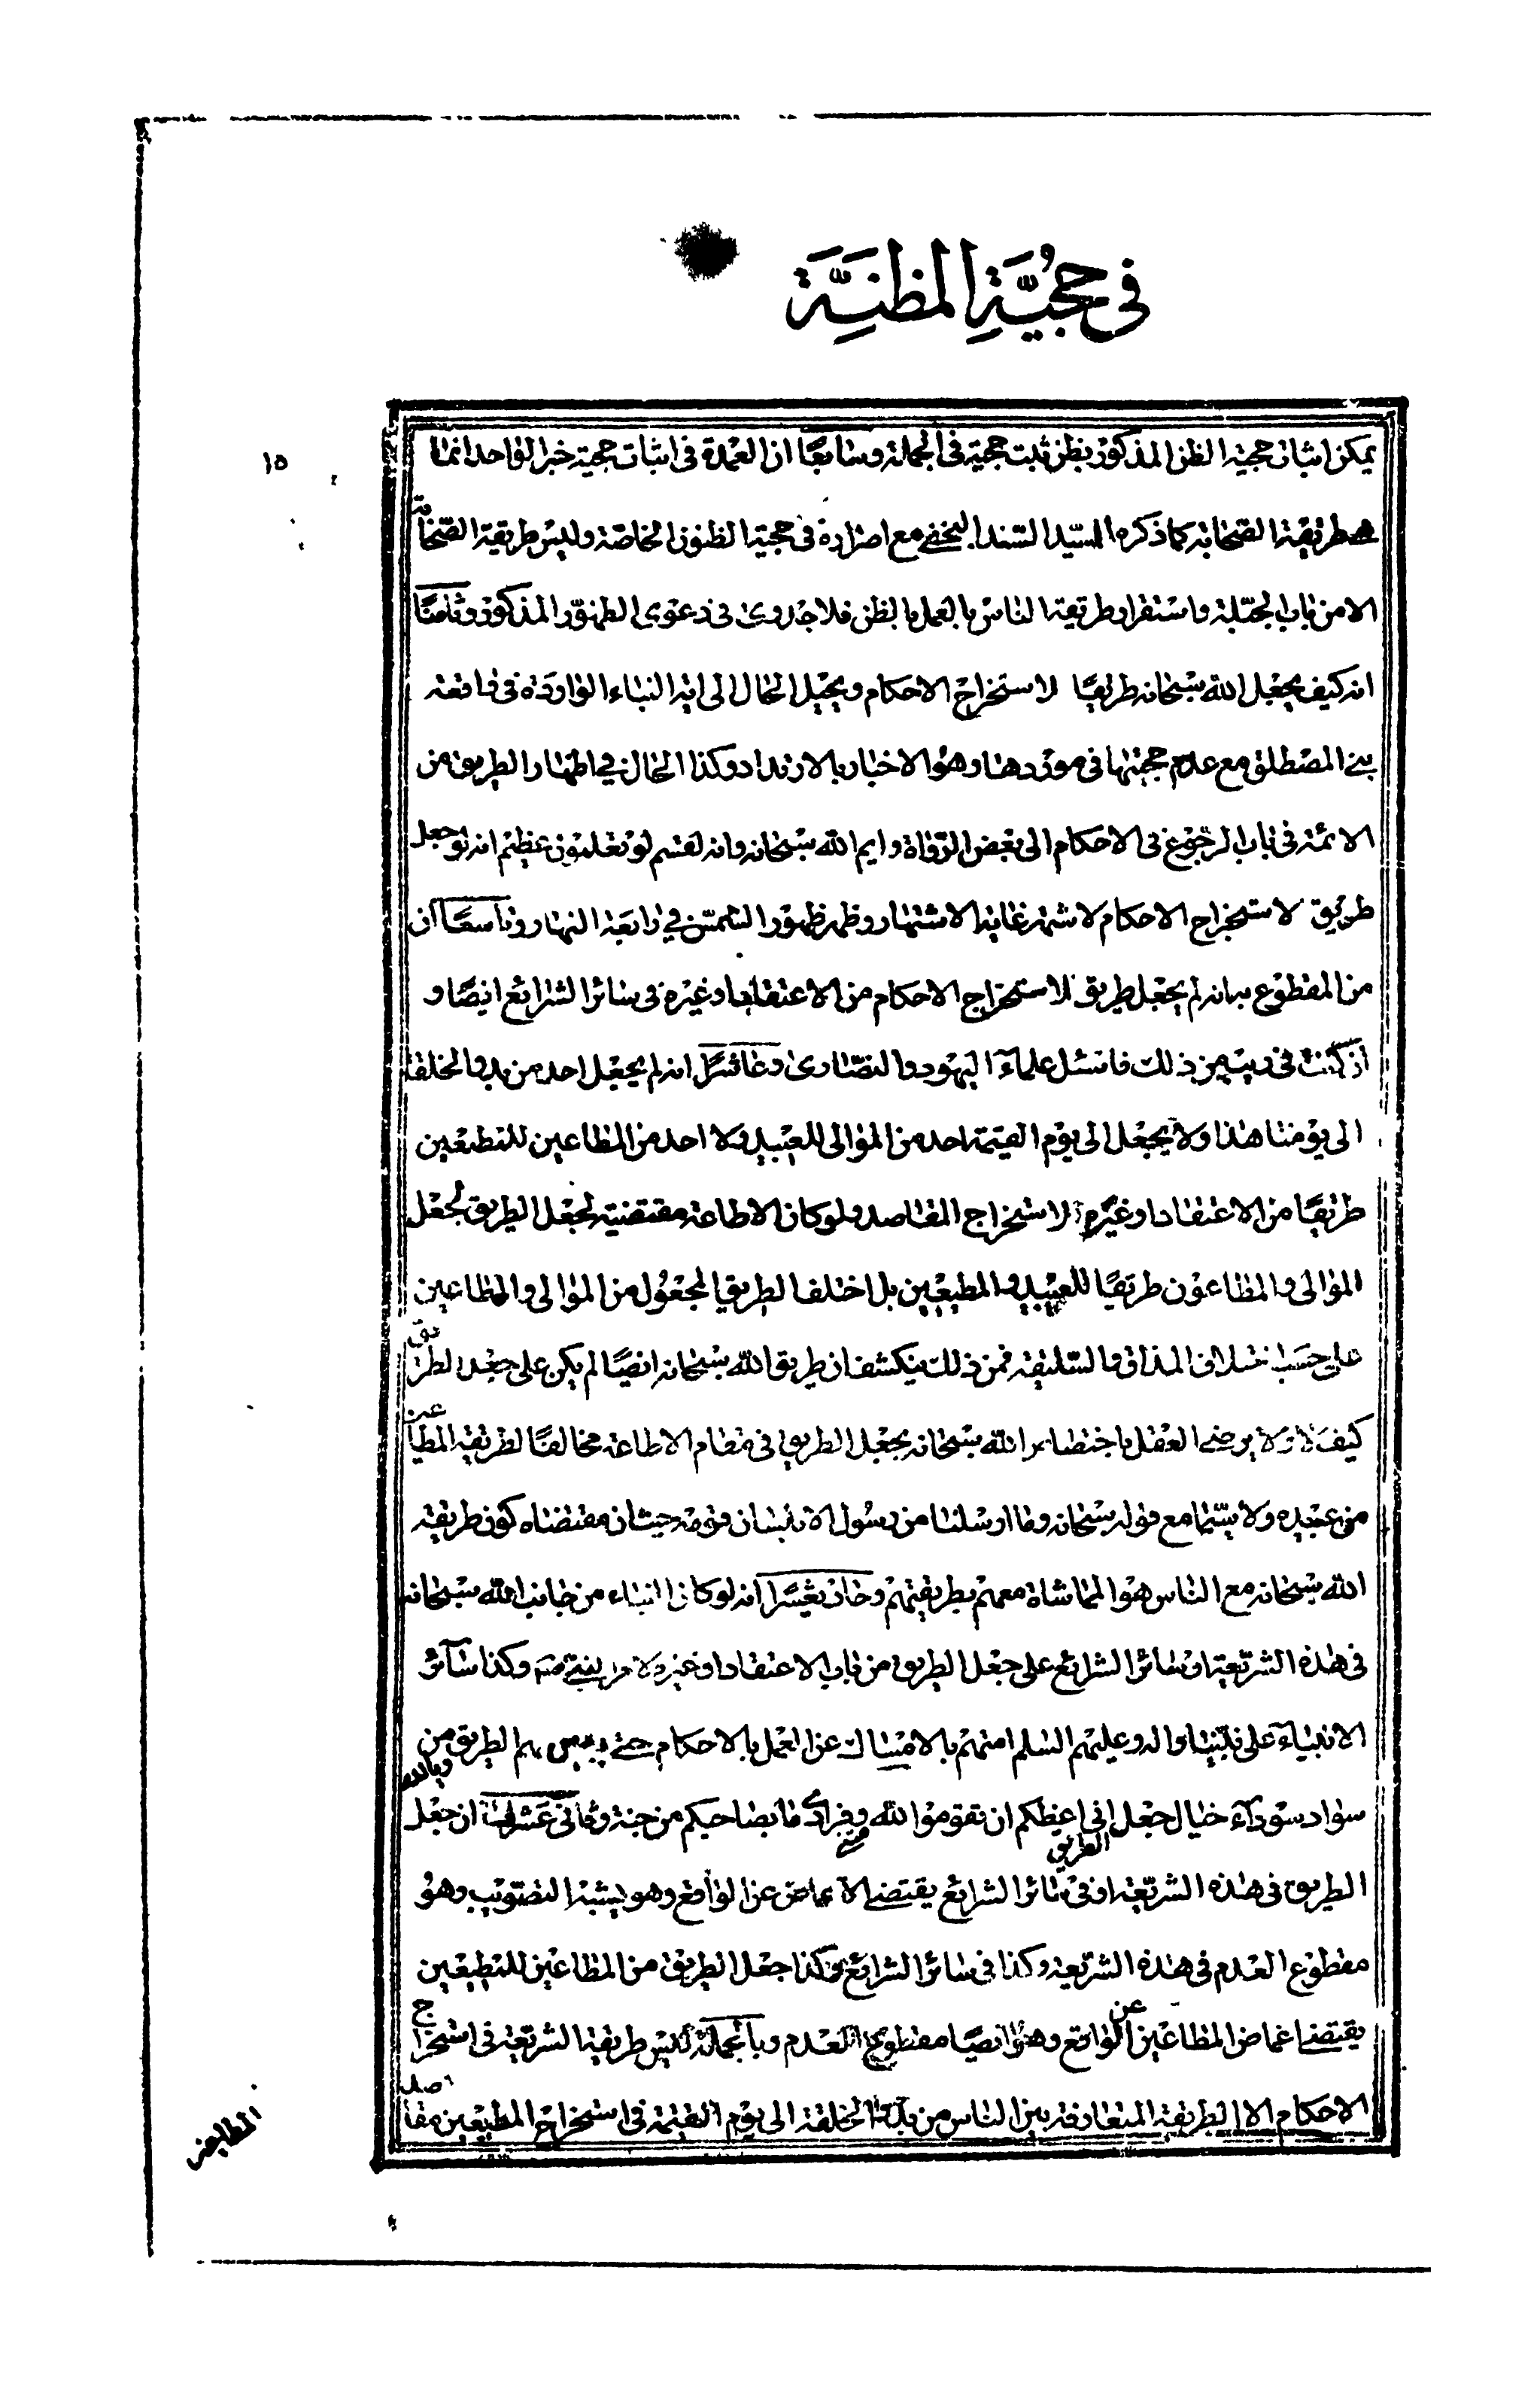 في حجية المظنة
١٥
يمكن اثبات حجية الظن المذكور بظن ثبت حجية في الجملة وسابعا ان العمدة في اثبات حجية خبر الواحد انما
هو طريقة الصحابة كما ذكره السيد السند النجفي مع اصراره في حجية الظنون الخاصة وليس طريقة الصحابة
الا من باب الجبلة واستقرار طريقة الناس بالعمل بالظن فلا جدوى في دعوى الظهور المذكور وثامنا
انه كيف يجعل الله سبحانه طريقا لاستخراج الاحكام ويحيل الحال الى اية النباء الواردة في واقعة
بني المصطلق مع عدم حجيتها في موردها وهو الاخبار بالارتداد وكذا الحال في اظهار الطريق من
الائمة في باب الرجوع في الاحكام الى بعض الرواة وايم الله سبحانه وانه لقسم لو تعلمون عظيم انه لو جعل
طريق لاستخراج الاحكام لاشتهر غاية الاشتهار وظهر ظهور الشمس في رابعة النهار وتاسعا ان
من المقطوع به انه لم يجعل طريق لاستخراج الاحكام من الاعتقاد او غيره في سائر الشرايع ايضا و
ان كنت في ريب من ذلك فاسئل علماء اليهود والنصارى وعاشرا انه لم يجعل احد من بدو الخلقة
الى يومنا هذا ولا يجعل الى يوم القيمة احد من الموالى للعبيد ولا احد من المطاعين للمطيعين
طريقا من الاعتقاد او غيره لاستخراج المقاصد ولو كان الاطاعة مقتضية لجعل الطريق لجعل
الموالى والمطاعون طريقا للعبيد والمطيعين بل اختلف الطريق المجعول من الموالى والمطاعين
على حسب اختلاف المذاق والسليقة فمن ذلك ينكشف ان طريق الله سبحانه ايضا لم يكن على جعل الطريق
كيف لا ولا يرضى العقل باختصاص الله سبحانه بجعل الطريق في مقام الاطاعة مخالفا لطريقة المطاعين
من عبيده ولا سيما مع قوله سبحانه وما ارسلنا من رسول الا بلسان قومه حيث ان مقتضاه كون طريقة
الله سبحانه مع الناس هو المماشاة معهم بطريقتهم وحادى عشر انه لو كان البناء من جانب الله سبحانه
في هذه الشريعة او سائر الشرايع على جعل الطريق من باب الاعتقاد او غيره لامر نبينا وكذا سائر
الانبياء على نبينا واله وعليهم السلم امتهم بالامساك عن العمل بالاحكام حتى يبين لهم الطريق من وبالله
سواد سوداء خيال جعل الطريق اني اعظكم ان تقوموا لله مثنى وفرادى ما بصاحبكم من جنة وثاني عشر ان جعل
الطريق في هذه الشريعة او في سائر الشرايع يقتضى الاغماض عن الواقع وهو يشبه التصويب وهو
مقطوع العدم في هذه الشريعة وكذا في سائر الشرايع وكذا جعل الطريق من المطاعين للمطيعين
يقتضى اغماض المطاعين عن الواقع وهو ايضا مقطوع العدم وبالجملة ليس طريقة الشريعة في استخراج
الاحكام الا الطريقة المتعارفة بين الناس من بدو الخلقة الى يوم القيمة في استخراج المطيعين مقاصد
المطاعين